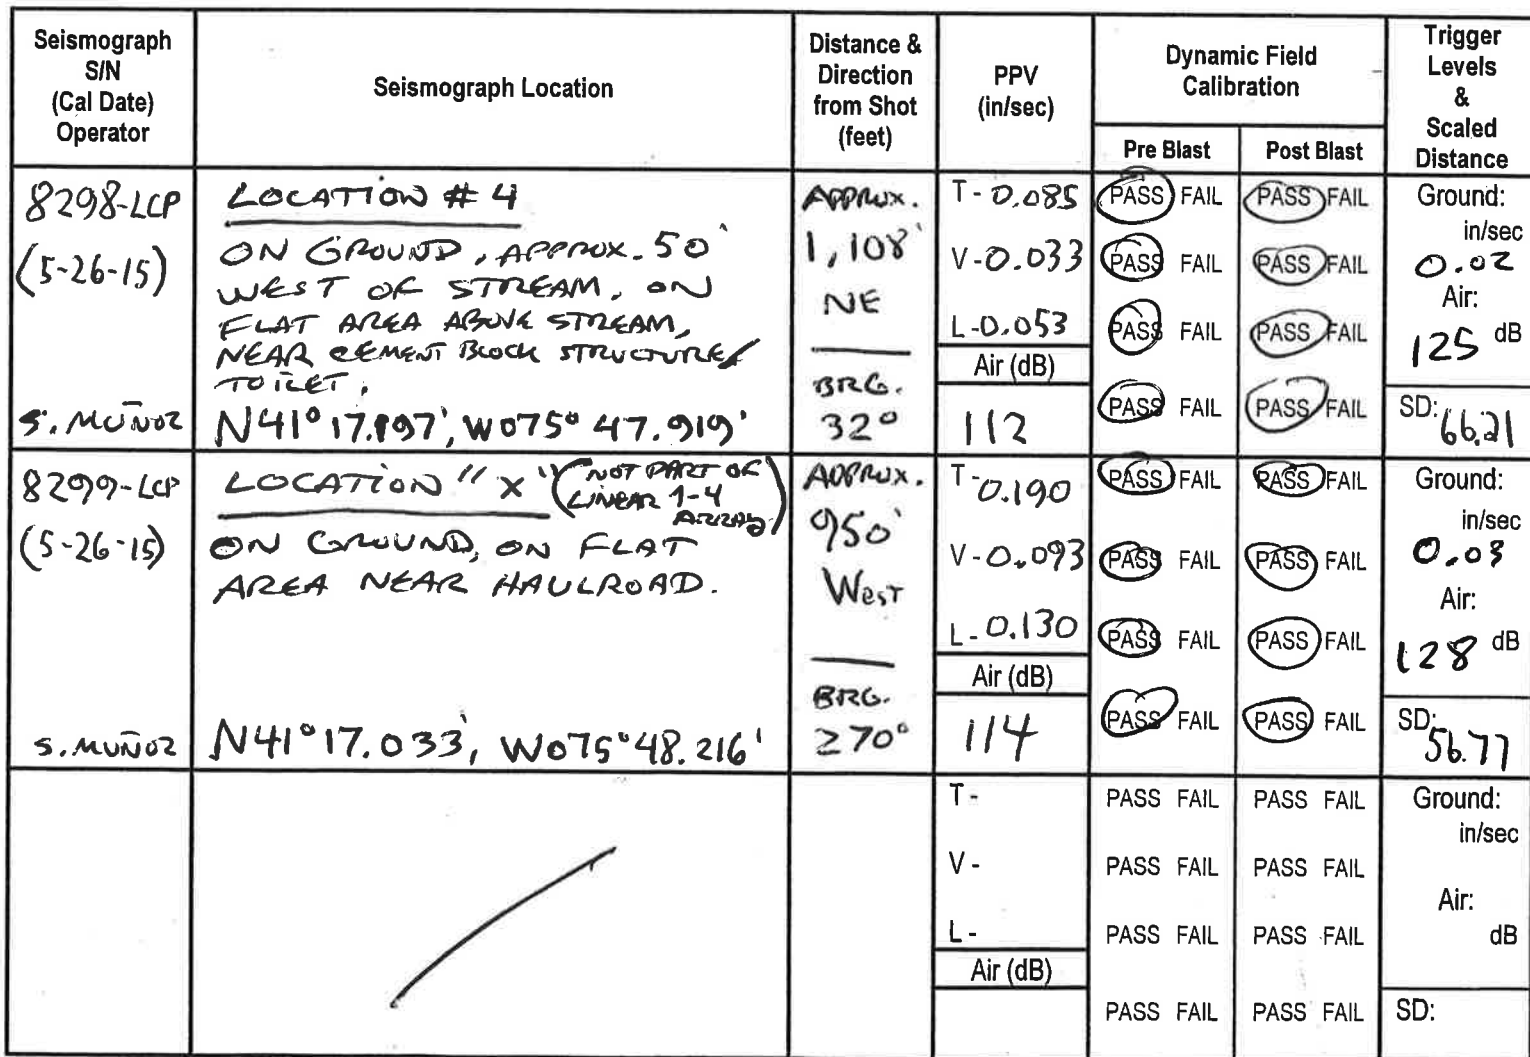 Seismograph
S/N
(Cal Date)
Operator
Seismograph Location
Distance &
Direction
from Shot
(feet)
PPV
(in/sec)
Dynamic Field
Calibration
Pre Blast
Post Blast
Trigger
Levels
&
Scaled
Distance
8298-LCP
(5-26-15)
S. MUÑOZ
LOCATION # 4
ON GROUND, APPROX. 50'
WEST OF STREAM, ON
FLAT AREA ABOVE STREAM,
NEAR CEMENT BLOCK STRUCTURE/
TOILET.
N41° 17.197', W075° 47.919'
APPROX.
1,108'
NE
BRG.
32°
T - 0.085
V - 0.033
L - 0.053
Air (dB)
112
PASS FAIL
PASS FAIL
PASS FAIL
PASS FAIL
PASS FAIL
PASS FAIL
PASS FAIL
PASS FAIL
Ground:
in/sec
0.02
Air:
125 dB
SD: 66.21
8299-LCP
(5-26-15)
S. MUÑOZ
LOCATION "X" (NOT PART OF
LINEAR 1-4
ARRAY)
ON GROUND, ON FLAT
AREA NEAR HAULROAD.
N41° 17.033', W075° 48.216'
APPROX.
950'
West
BRG.
270°
T - 0.190
V - 0.093
L - 0.130
Air (dB)
114
PASS FAIL
PASS FAIL
PASS FAIL
PASS FAIL
PASS FAIL
PASS FAIL
PASS FAIL
PASS FAIL
Ground:
in/sec
0.03
Air:
128 dB
SD: 56.77
T -
V -
L -
Air (dB)
PASS FAIL
PASS FAIL
PASS FAIL
PASS FAIL
PASS FAIL
PASS FAIL
PASS FAIL
PASS FAIL
Ground:
in/sec
Air:
dB
SD: